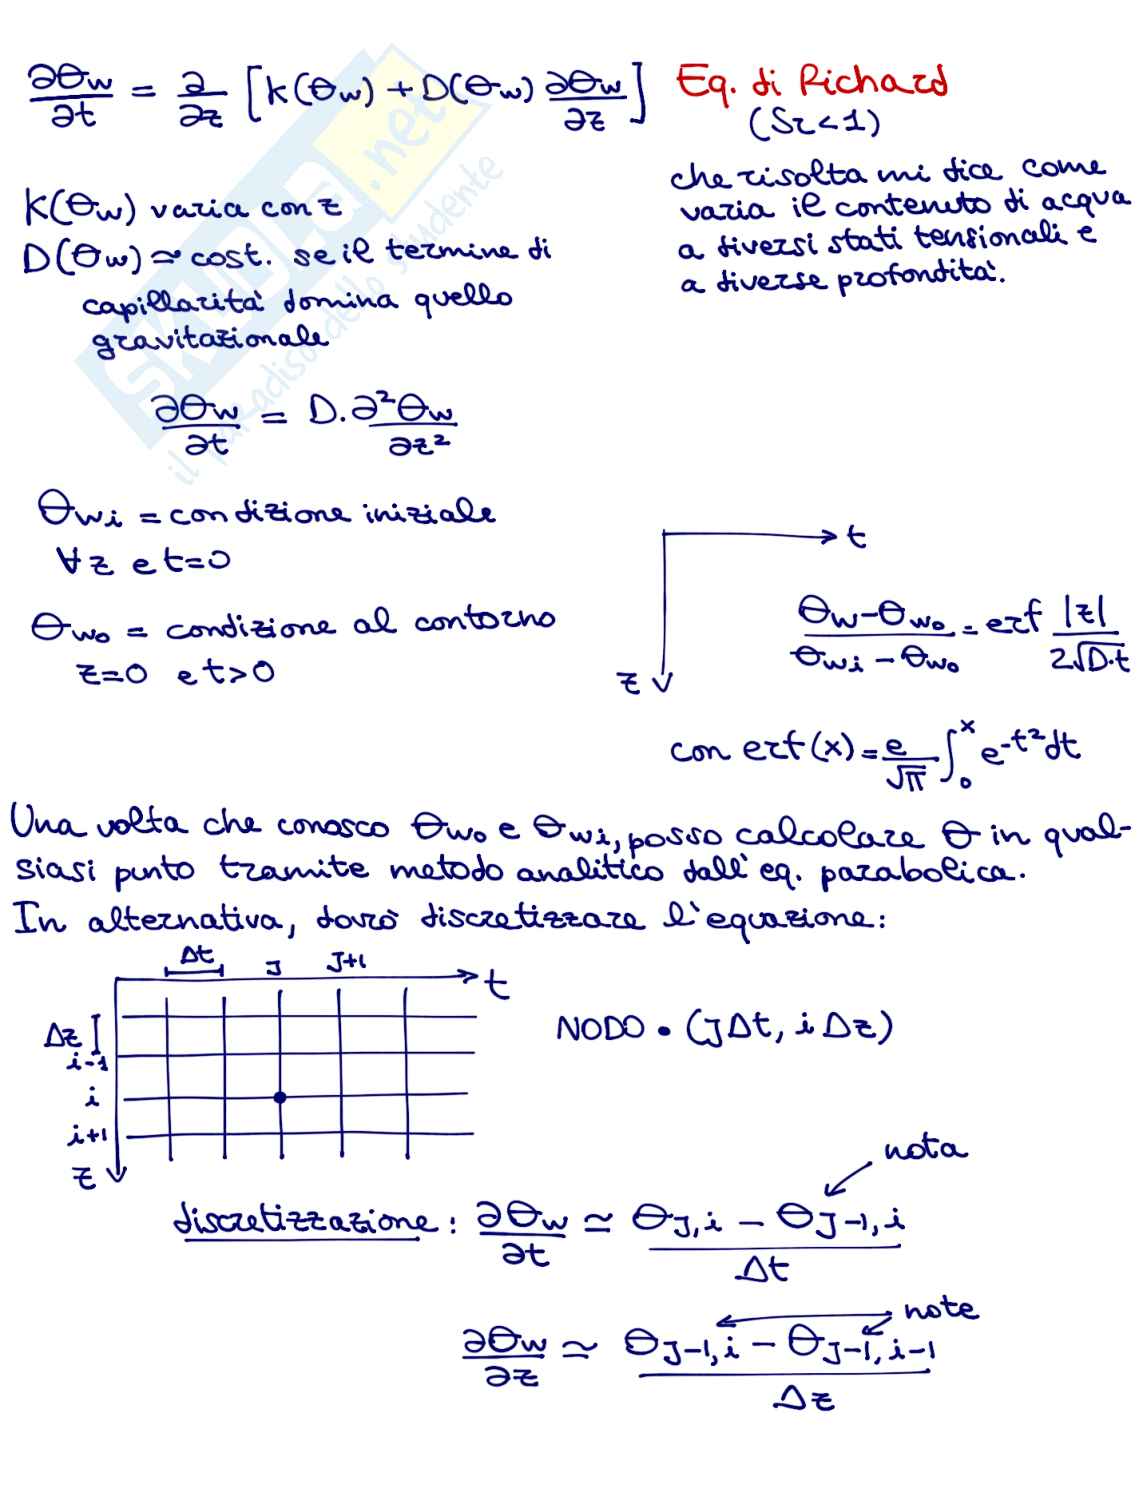 ∂θw/∂t = ∂/∂z [K(θw) + D(θw) ∂θw/∂z] Eq. di Richard
(Sr<1)
che risolta mi dice come
varia il contenuto di acqua
a diversi stati tensionali e
a diverse profondità.
K(θw) varia con z
D(θw) ≃ cost. se il termine di
capillarità domina quello
gravitazionale
∂θw/∂t = D·∂²θw/∂z²
θwi = condizione iniziale
∀z e t=0
θwo = condizione al contorno
z=0 e t>0
t
z
(θw-θwo)/(θwi-θwo) = erf |z|/(2√(D·t))
con erf(x) = e/√π ∫₀ˣ e^-t² dt
Una volta che conosco θwo e θwi, posso calcolare θ in qual-
siasi punto tramite metodo analitico dall'eq. parabolica.
In alternativa, dovrò discretizzare l'equazione:
Δt J J+1 t
Δz
i-1
i
i+1
z
NODO • (JΔt, iΔz)
nota
discretizzazione: ∂θw/∂t ≃ (θJ,i - θJ-1,i)/Δt
note
∂θw/∂z ≃ (θJ-1,i - θJ-1,i-1)/Δz
SKUOLA.net
il paradiso dello studente